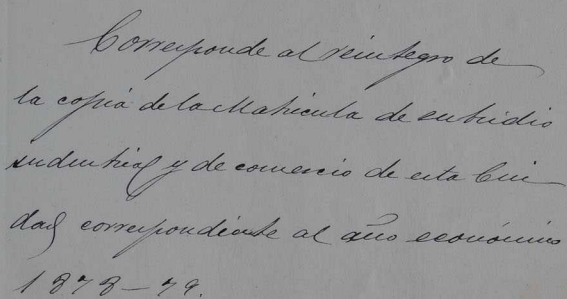 Corresponde al reintegro de
la copia de la Matricula de subsidio
industrial y de comercio de esta Ciu
dad correspondiente al año económico
1878-79.